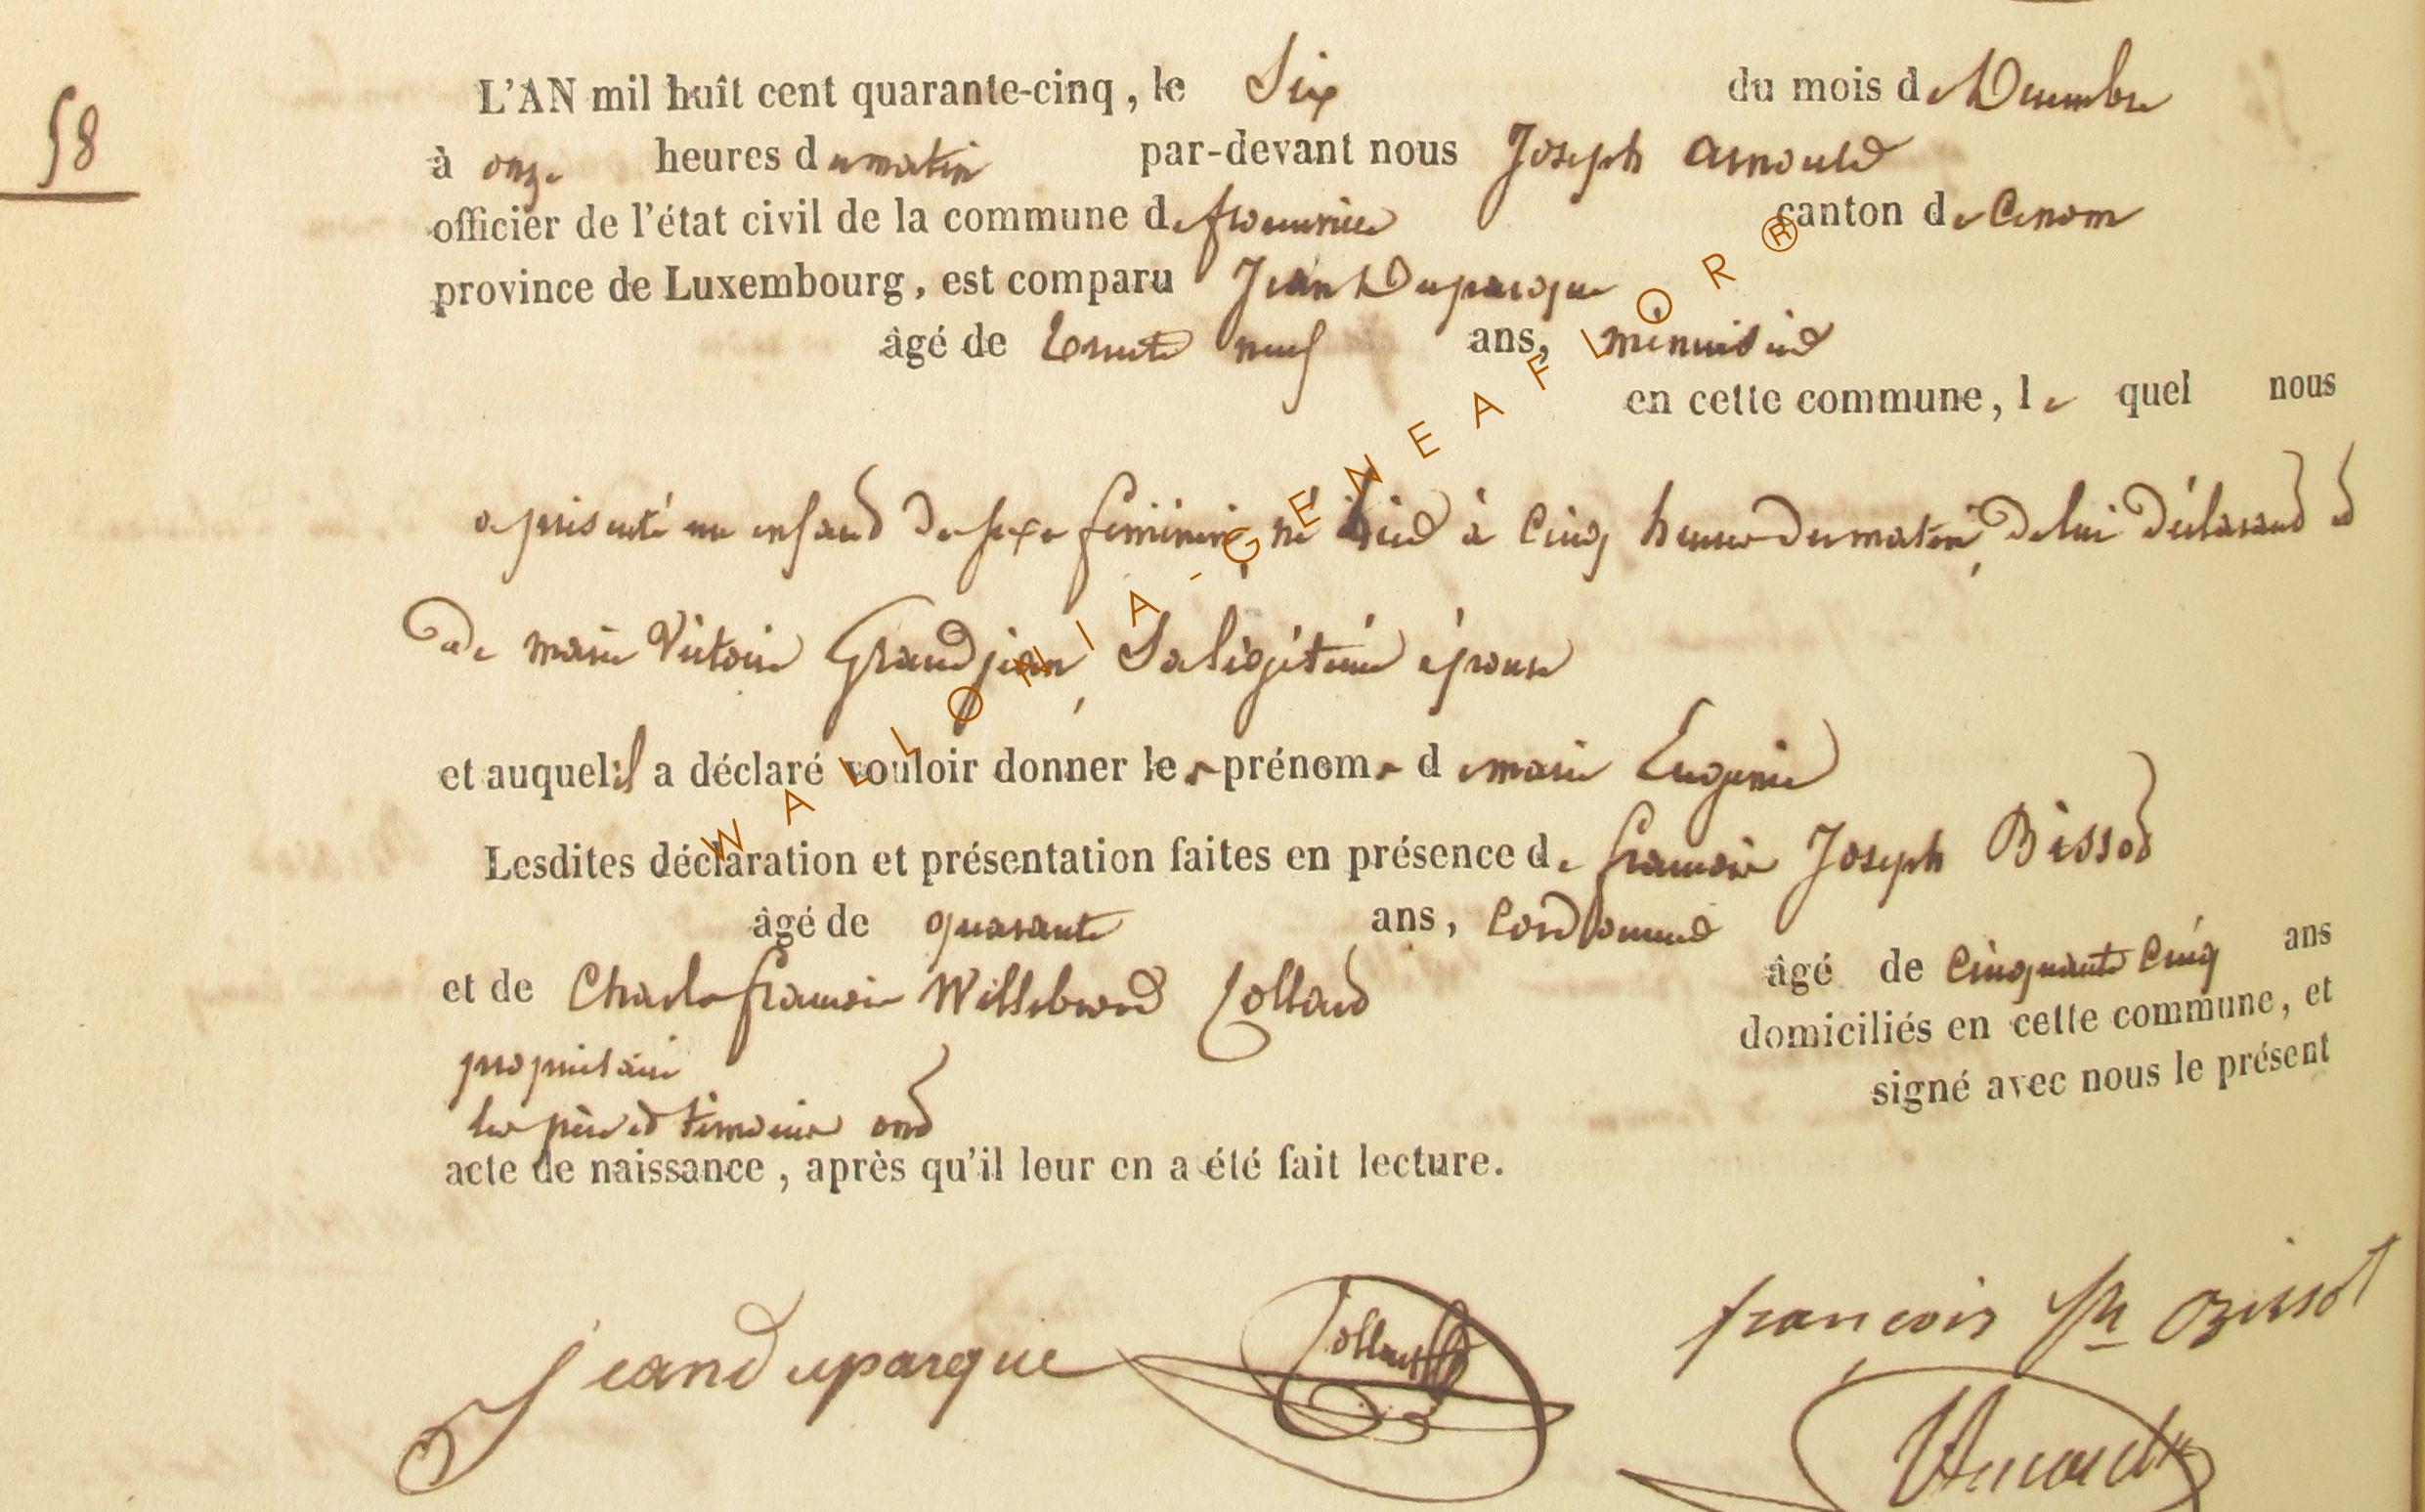 58
L'AN mil huît cent quarante-cinq, le Six du mois de Décembre
à onze heures du matin par-devant nous Joseph Arnould
officier de l'état civil de la commune de canton de
province de Luxembourg, est comparu Jean Duparque
âgé de trente neuf ans, menuisier
en cette commune, le quel nous
a présenté un enfant du sexe féminin, né hier à cinq heures du matin, de lui déclarant et
de marie Victoire Grandjean, Sa légitime épouse
et auquel il a déclaré vouloir donner les prénoms de marie Eugenie
Lesdites déclaration et présentation faites en présence de francois Joseph Bissot
âgé de quarante ans, Cordonnier
et de Charles francois Willebrord Collard âgé de cinquante cinq ans
propriétaire domiciliés en cette commune, et
les père et témoins ont signé avec nous le présent
acte de naissance, après qu'il leur en a été fait lecture.
Jean Duparque Collard françois Jph Bissot
WALLONIA-GENEAFLOR®